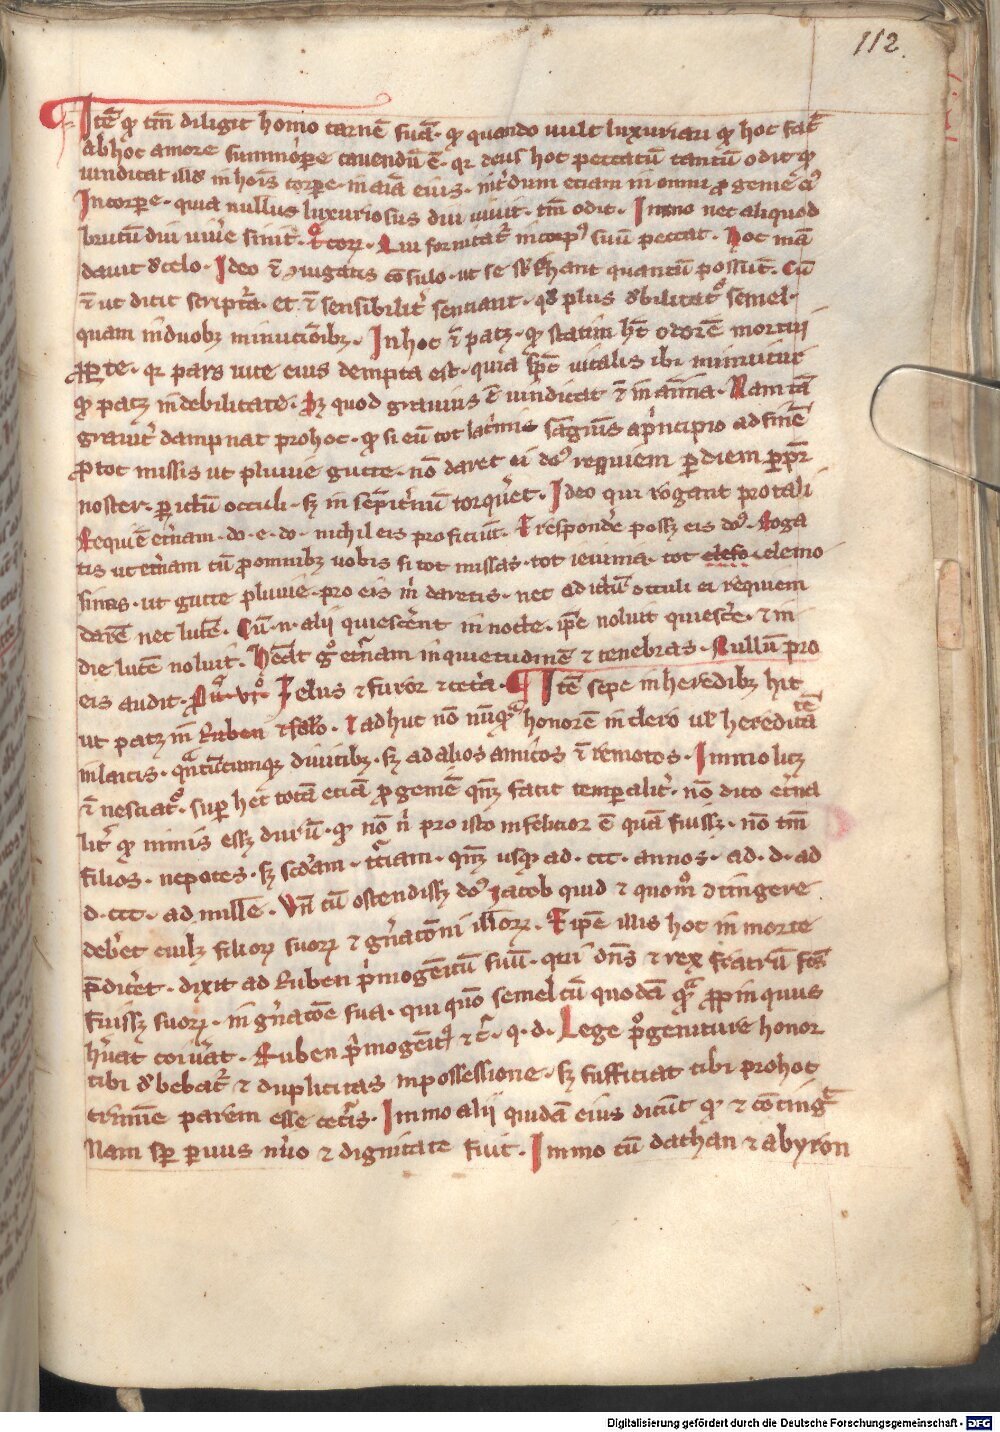 112.
Itē qͥ tm̄ diligit homo carnē suā · qͥ quando uult luxuriari qͥ hoc facͭ
ab hoc amore summoꝑe cauendū ē · qꝛ deus hoc peccatū tantū odit qͥ
uindicat illud in hoīs corꝑe · in aīa eius · int̄dum etiam in omni ꝓgenie eiꝰ
In corꝑe · quia nullus luxuriosus diu uiuit · tm̄ odit · Immo nec aliquod
brutū diu uiuē sinit · Qui fornicat̄ in corpꝰ suū peccat · Hoc
dauit de celo · Ideo ⁊ ꝯiugatis cōsulo · ut se quantū possūt · Cū
⁊ ut dicit scriptā · et ⁊ sensibilit̄ senciant · qd plus debilitat̄ semel ·
quam in duobꝫ minucionibꝫ · In hoc ⁊ patꝫ · qͥ statim hn̄t odorē mortui
qꝛ pars uite eius dempta est · quia sp̄c uitalis ibi minuitur
qͥ patꝫ in debilitate · Sꝫ quod grauius ē uindicat ⁊ in anima · Nam tā
grauit̄ dampnat pro hoc · qͥ si eū tot lacͥmis sāguīs a pͥncipio ad finē
ꝓ tot missis ut pluuie gutte · nō daret ei deꝰ requiem ꝑ diem
noster · ꝑ ictū occuli · sꝫ in sēpit̄nū torquet · Ideo qui rogant pro tali
Requiē et̄nam · do · e · do · nichil eis proficiūt · respondē possꝫ eis deꝰ · Roga
tis ut et̄nam cū ꝓ omnibꝫ uobis si tot missas · tot ieiunia · tot elefo elemo
sinas · ut gutte pluuie · pro eis m̄ daretis · nec ad ictū occuli ei requiem
darē nec lucē · Cū · n · alii quiescerent in nocte · ip̄e noluit quiescē · ⁊ in
die lucē noluit · gͦ et̄nam inquietudinē ⁊ tenebras · Nullū pro
eis audit · Zelus ⁊ furor ⁊ cetā · Itē sepe in heredibꝫ hic
ut patꝫ in Ruben · adhuc nō honorē in clero ul̄ heredita
tē
in laicis · diuitibꝫ · sꝫ ad alios amicos ⁊ remotos · Immo licꝫ
⁊ nesciat̄ · suꝑ hec totā etiā ꝓgeniē qn̄ꝫ facit temꝑalit̄ · nō dico et̄na
lit̄ qͥ nimis essꝫ durū · qͥ nō n̄ pro isto infelicior ē quā fuissꝫ · nō tm̄
filios · nepotes · sꝫ scdam · t̄ciam · qn̄ꝫ usqꝫ ad · ccc · annos · ad · d · ad
d · ccc · ad mille · Vn̄ cū ostendissꝫ deꝰ Jacob quid ⁊ quom̄ ꝯtingere
deberet cuilꝫ filioꝝ suoꝝ ⁊ gn̄acōni illoꝝ · ip̄e illis hoc in morte
p̄diceret · dixit ad Ruben pͥmogenitū suū · qui dn̄s ⁊ rex fratrū
fuissꝫ suoꝝ · in gn̄acōe sua · qui quō semel cū quodā ꝓpinquus
Ruben pͥmogenitꝰ ⁊ c̄ · q · d · Lege pͥgeniture honor
tibi debebat̄ ⁊ duplicitas in possessione · sꝫ sufficiat tibi pro hoc
crimine parem esse cetīs · Immo alii quidā eius dicūt qͥ ⁊ cōtingͣ
Nam sꝑ paruus nūo ⁊ dignitate fuit · Immo cū dathan ⁊ abyron
Digitalisierung gefördert durch die Deutsche Forschungsgemeinschaft - DFG